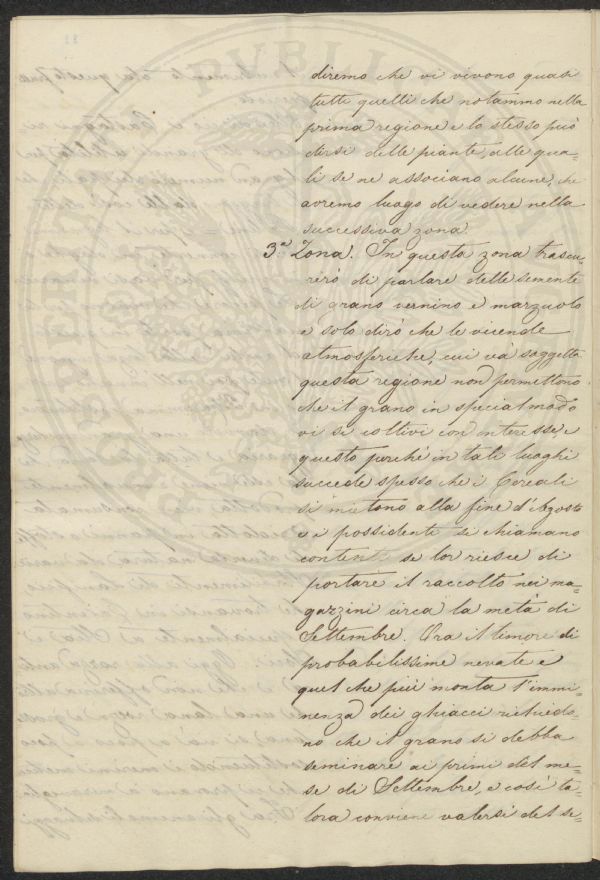 diremo che vi vivono quasi
tutti quelli che notammo nella
prima regione e lo stesso può
dirsi delle piante, alle qua-
li se ne associano alcune, che
avremo luogo di vedere nella
successiva zona.
3.a Zona. In questa zona trascu-
rerò di parlare delle semente
di grano vernino e marzuolo
e solo dirò che le vicende
atmosferiche, cui và soggetta
questa regione non permettono
che il grano in special modo
vi si coltivi con interesse, e
questo perchè in tali luoghi
succede spesso che i Cereali
si mietono alla fine d'Agosto
e i possidenti si chiamano
contenti se lor riesce di
portare il raccolto nei ma-
gazzini circa la metà di
Settembre. Ora il timore di
probabilissime nevate e
quel che più monta l'immi-
nenza dei ghiacci richiedo-
no che il grano si debba
seminare ai primi del me-
se di Settembre, e così ta-
lora conviene valersi del se-